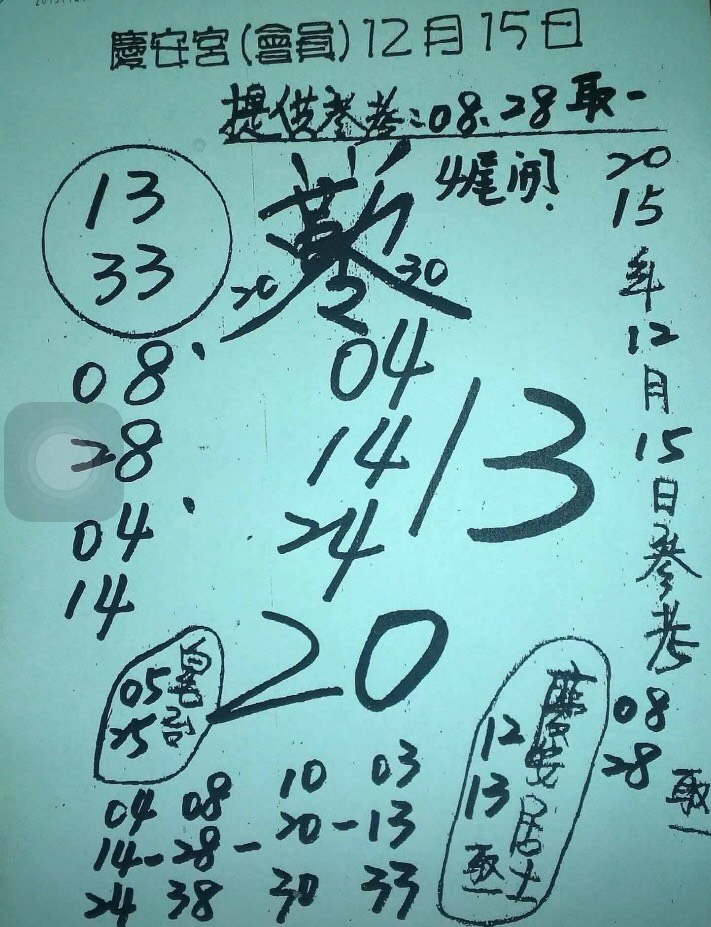 慶安宮(會員)12月15日
提供參考:08、28取一
4尾開!
13
33
20 2 30
08
28
04
14
04
14
24
13
20
05
25
04 08 10 03
14-28-20-13
24 38 30 33
慶安居士
12
13
取一
20
15
年
12
月
15
日
參
考
08
28
取一